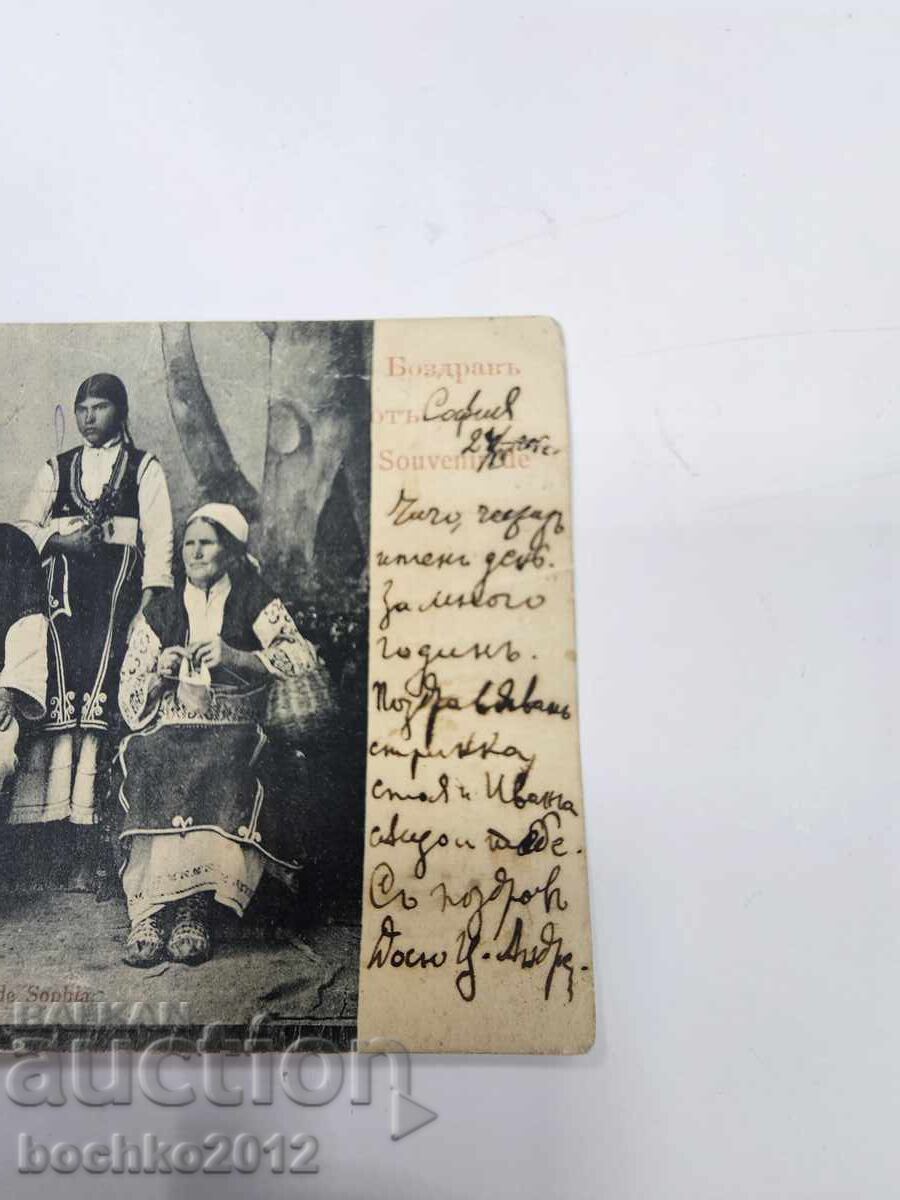 Боздравъ
отъ София
Souvenir de
Чичо,
имень день.
За много
годинъ.
Поздравявамъ
стринка
стоя и Ивана
и тебе.
Съ поздрав
Ц. Андр.
de Sophia
BALKAN
auction
bochko2012